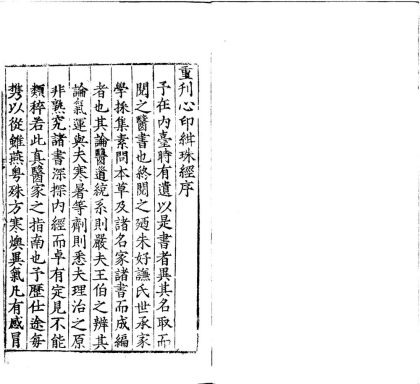 重刊心印紺珠經序
予在內臺時有遺以是書者異其名取而
閱之醫書也終閱之廼朱好謙氏世承家
學採集素問本草及諸名家諸書而成編
者也其論醫道統系則嚴夫王伯之辨其
論氣運與夫寒暑等劑則悉夫理治之原
非熟究諸書深探內經而卓有定見不能
類稡若此真醫家之指南也予歷仕途每
携以從雖燕粵殊方寒燠異氣凡有感冒